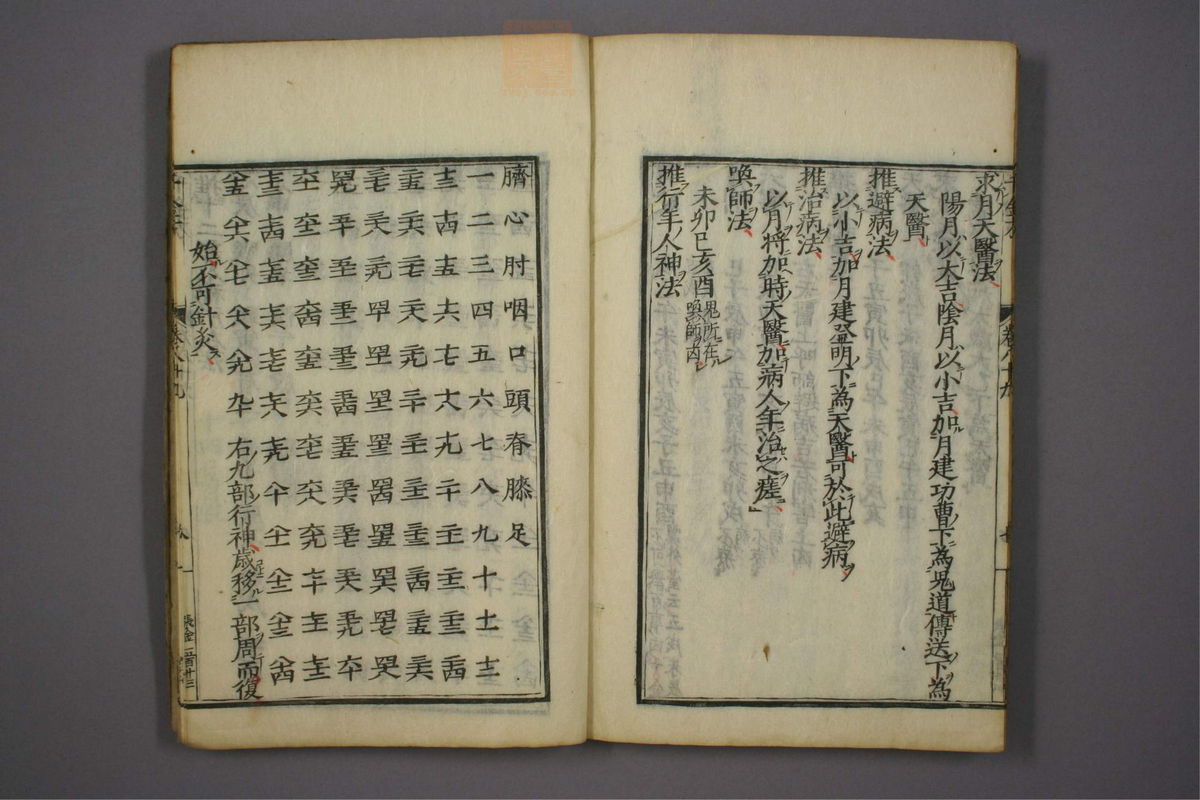 求月天醫法
陽月以大吉陰月以小吉加月建功曹下為鬼道傳送下為
天醫
推避病法
以小吉加月建登明下為天醫可於此避病
推治病法
以月將加時天醫加病人年治之瘥
喚師法
未卯巳亥酉鬼所在喚師凶
推行年人神法
臍心肘咽口頭脊膝足
一二三四五六七八九十十一十二
十三十四十五十六十七十八十九二十二十一二十二二十三二十四
二十五二十六二十七二十八二十九三十三十一三十二三十三三十四三十五三十六
三十七三十八三十九四十四十一四十二四十三四十四四十五四十六四十七四十八
四十九五十五十一五十二五十三五十四五十五五十六五十七五十八五十九六十
六十一六十二六十三六十四六十五六十六六十七六十八六十九七十七十一七十二
七十三七十四七十五七十六七十七七十八七十九八十八十一八十二八十三八十四
八十五八十六八十七八十八八十九九十右九部行神歲移一部周而復
始不可針灸
卷八十九